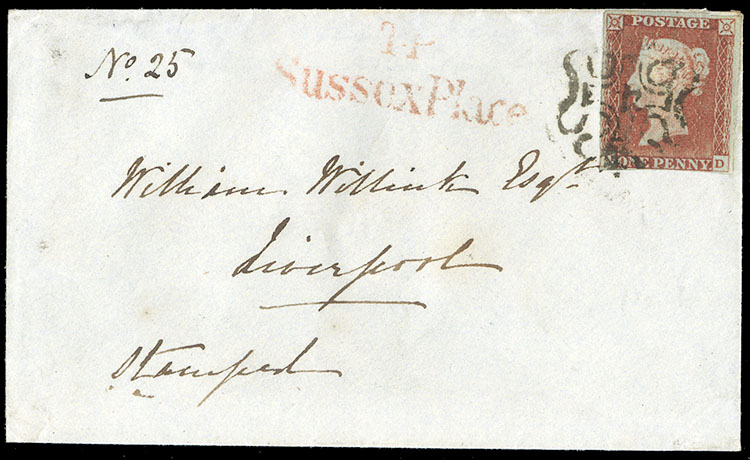 No. 25
Sussex Place
POSTAGE
ONE PENNY D
William Willink Esqr
Liverpool
Stamped